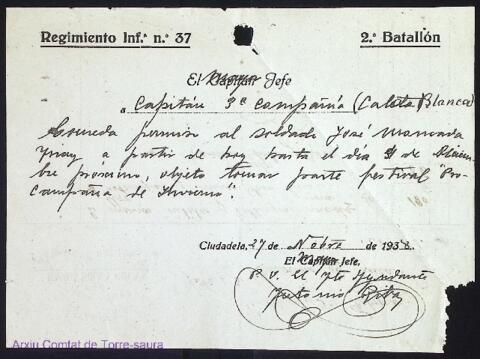 Regimiento Inf.ª n.º 37
2.º Batallón
El Mayor Jefe
a Capitán 3ª Campañia (Caleta Blanca)
Conceda permiso al soldado José Moncada
a partir de hoy hasta el día 9 de Diciem-
bre proximo, objeto tomar parte festival "Pro-
Campaña de Invierno".
Ciudadela, 27 de Nobre de 1938
El Mayor Jefe,
P. O. El Tte Ayudante
Antonio Riba
Arxiu Comtat de Torre-saura